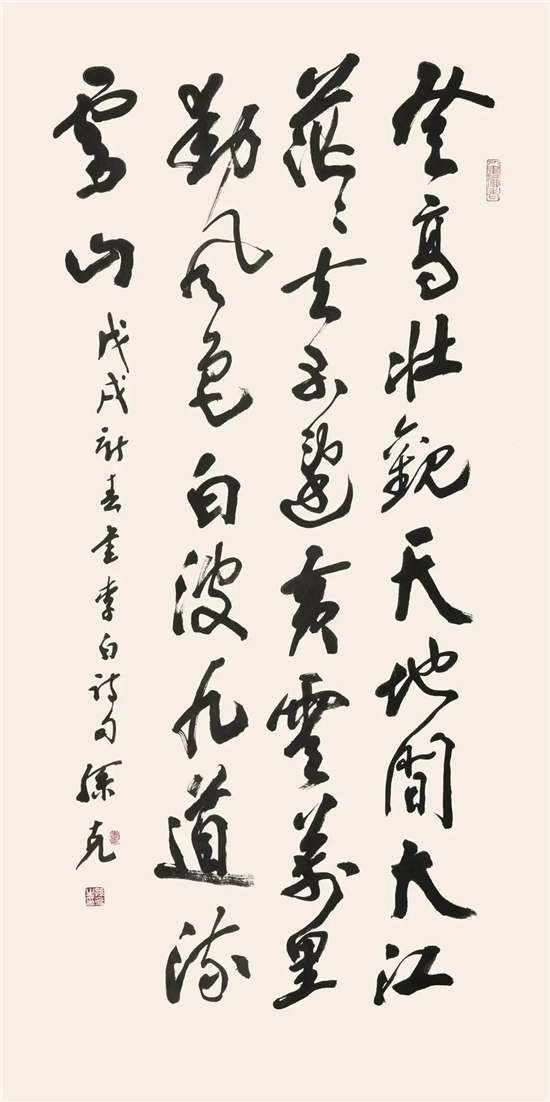 登高壮觀天地間大江
茫々去不還黄雲萬里
動風色白波九道流
雪山
戊戌新春書李白詩句孫克